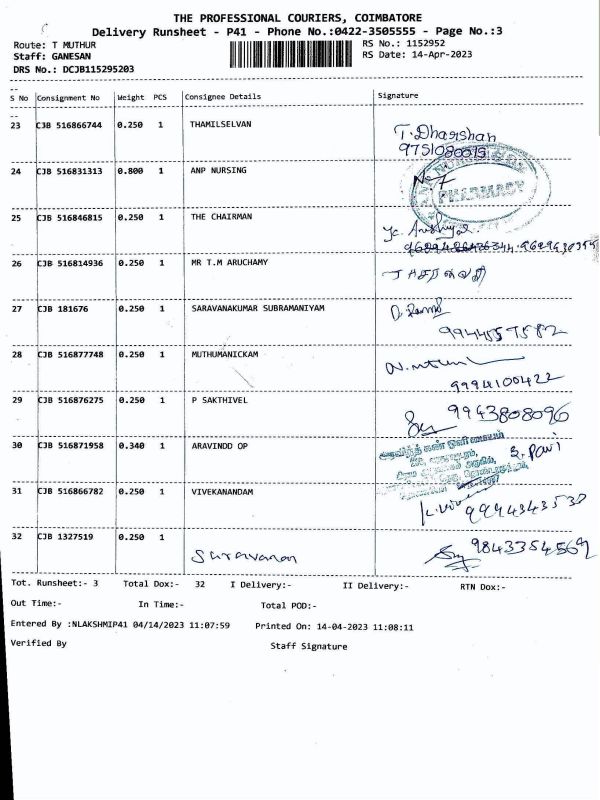 THE PROFESSIONAL COURIERS, COIMBATORE
Delivery Runsheet - P41 - Phone No.:0422-3505555 - Page No.:3
Route: T MUTHUR
RS No.: 1152952
Staff: GANESAN
RS Date: 14-Apr-2023
DRS No.: DCJB115295203
S No Consignment No Weight PCS Consignee Details Signature
23 CJB 516866744 0.250 1 THAMILSELVAN T. Dharshan
9751080015
24 CJB 516831313 0.800 1 ANP NURSING
PHARMACY
25 CJB 516846815 0.250 1 THE CHAIRMAN
26 CJB 516814936 0.250 1 MR T.M ARUCHAMY
27 CJB 181676 0.250 1 SARAVANAKUMAR SUBRAMANIYAM
9944557582
28 CJB 516877748 0.250 1 MUTHUMANICKAM
9994100422
29 CJB 516876275 0.250 1 P SAKTHIVEL 9943808096
30 CJB 516871958 0.340 1 ARAVINDD OP
அரவிந்த் கண் ஒளி மையம்
31 CJB 516866782 0.250 1 VIVEKANANDAM 9994343530
32 CJB 1327519 0.250 1 Saravanan 9843354569
Tot. Runsheet:- 3 Total Dox:- 32 I Delivery:- II Delivery:- RTN Dox:-
Out Time:- In Time:- Total POD:-
Entered By :NLAKSHMIP41 04/14/2023 11:07:59 Printed On: 14-04-2023 11:08:11
Verified By Staff Signature